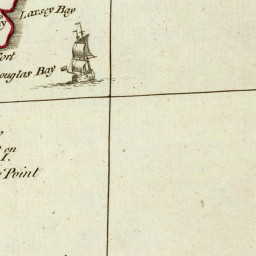 Laxsey Bay
ort
ouglas Bay
on
I.
Point